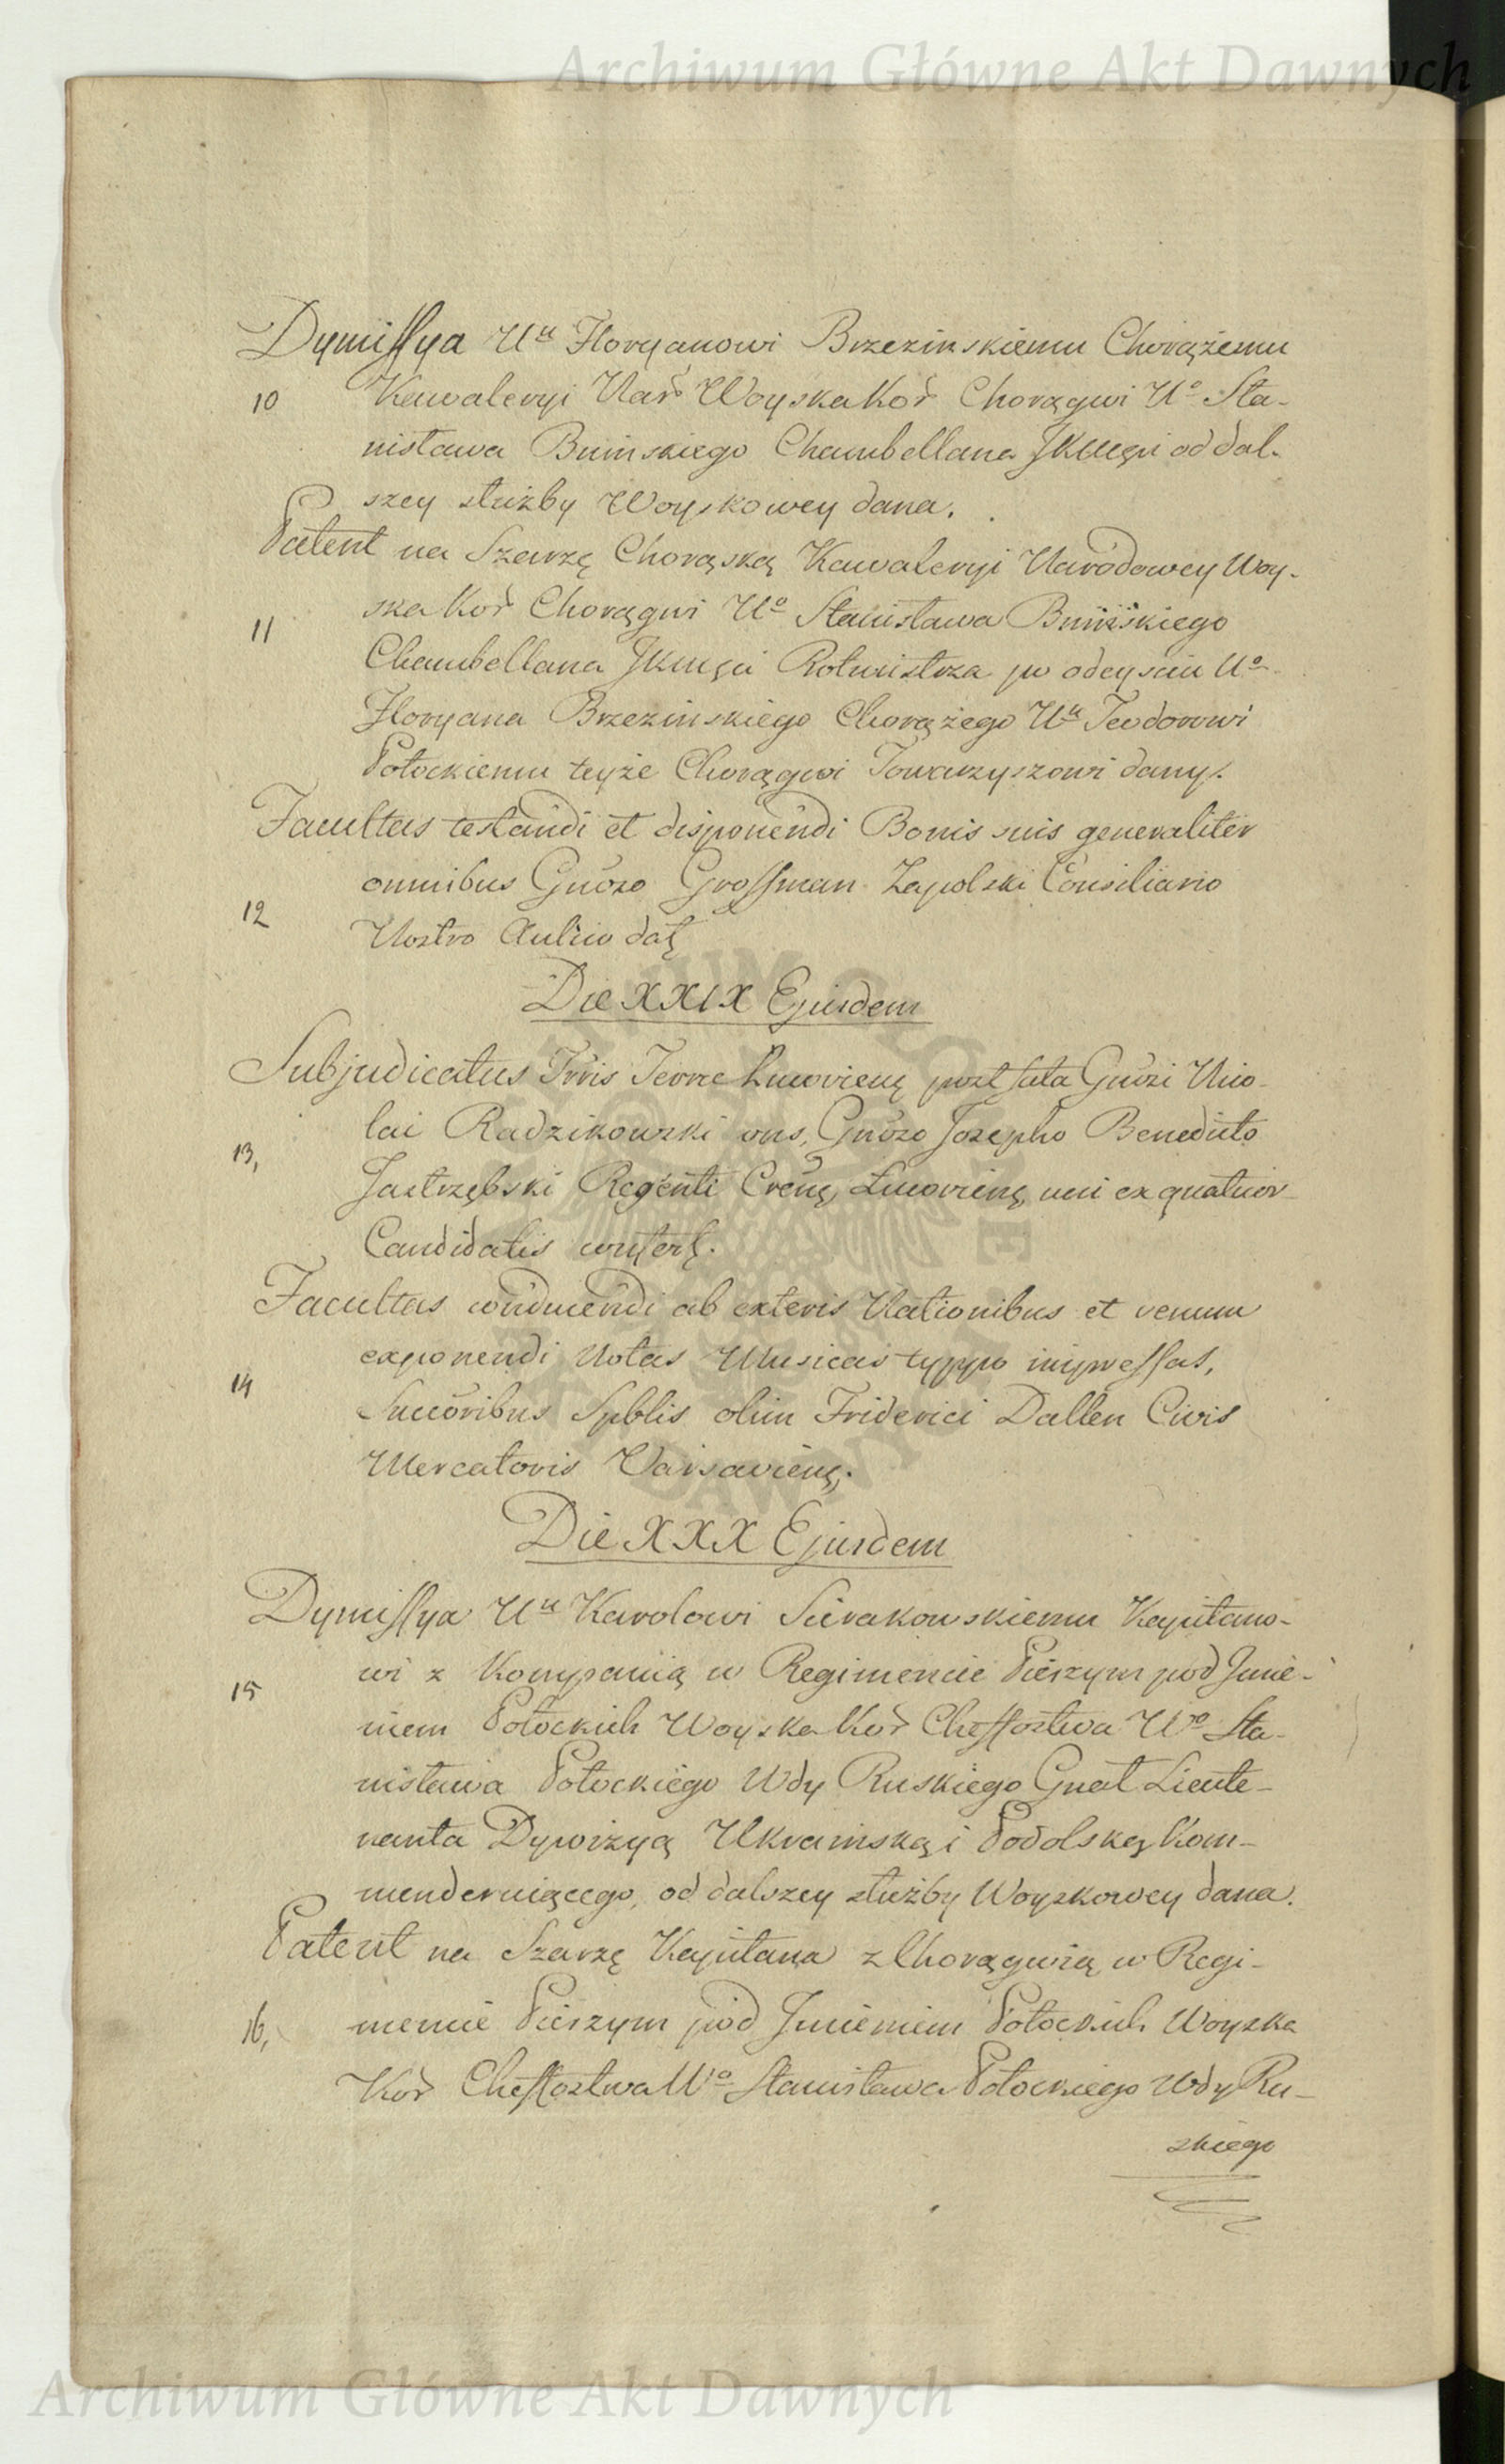 Archiwum Główne Akt Dawnych
Dymissya Uu Floryanowi Brzezinskiemu Chorążemu
10 Kawaleryi Nar Woyska Kor Chorągwi Uo Sta-
nisława Bninskiego Chambellana JKMęci od dal-
szey służby Woyskowey dana.
Patent na Szarzę Chorąską Kawaleryi Narodowey Woy-
11 ska Kor Chorągwi Uo Stanisława Bnińskiego
Chambellana JKmęci Rotmistrza po odeysciu Uo
Floryana Brzezinskiego Chorążego Uu Teodorowi
Potockiemu teyże Chorągwi Towarzyszowi dany.
Facultas testandi et disponendi Bonis suis generaliter
omnibus Gnoso Grossman Zapolski Consiliario
12 Nostro Aulico datę
Die XXIX Ejusdem
Subjudicatus Trris Terrae Lucoviens post fata Gnosi Nico-
lai Radzikowski ons, Gnoso Josepho Benedicto
13, Jastrzębski Regenti Crens, Lucoviens, uni ex quatuor
Candidatis confert.
Facultas conducendi ab exteris Nationibus et venum
exponendi Notas Musicas typpo impressas,
14 Succoribus Spblis olim Friderici Dallen Civis
Mercatoris Varsaviens,.
Die XXX Ejusdem
Dymissya Uu Karolowi Sierakowskiemu Kapitano-
15 wi z Kompanią w Regimencie Pieszym pod Jmie-
niem Potockich Woyska Kor Cheffostwa Wo Sta-
nisława Potockiego Wdy Ruskiego Gnał Lieute-
nanta Dywizyą Ukrainską i Podolską Kom-
menderuiącego, od dalszey służby Woyskowey dana.
Patent na Szarzę Kapitana z Chorągwią w Regi-
16, mencie Pieszym pod Jmieniem Potockich Woyska
Kor Cheffostwa Wo Stanisława Potockiego Wdy Ru-
skiego
Archiwum Główne Akt Dawnych